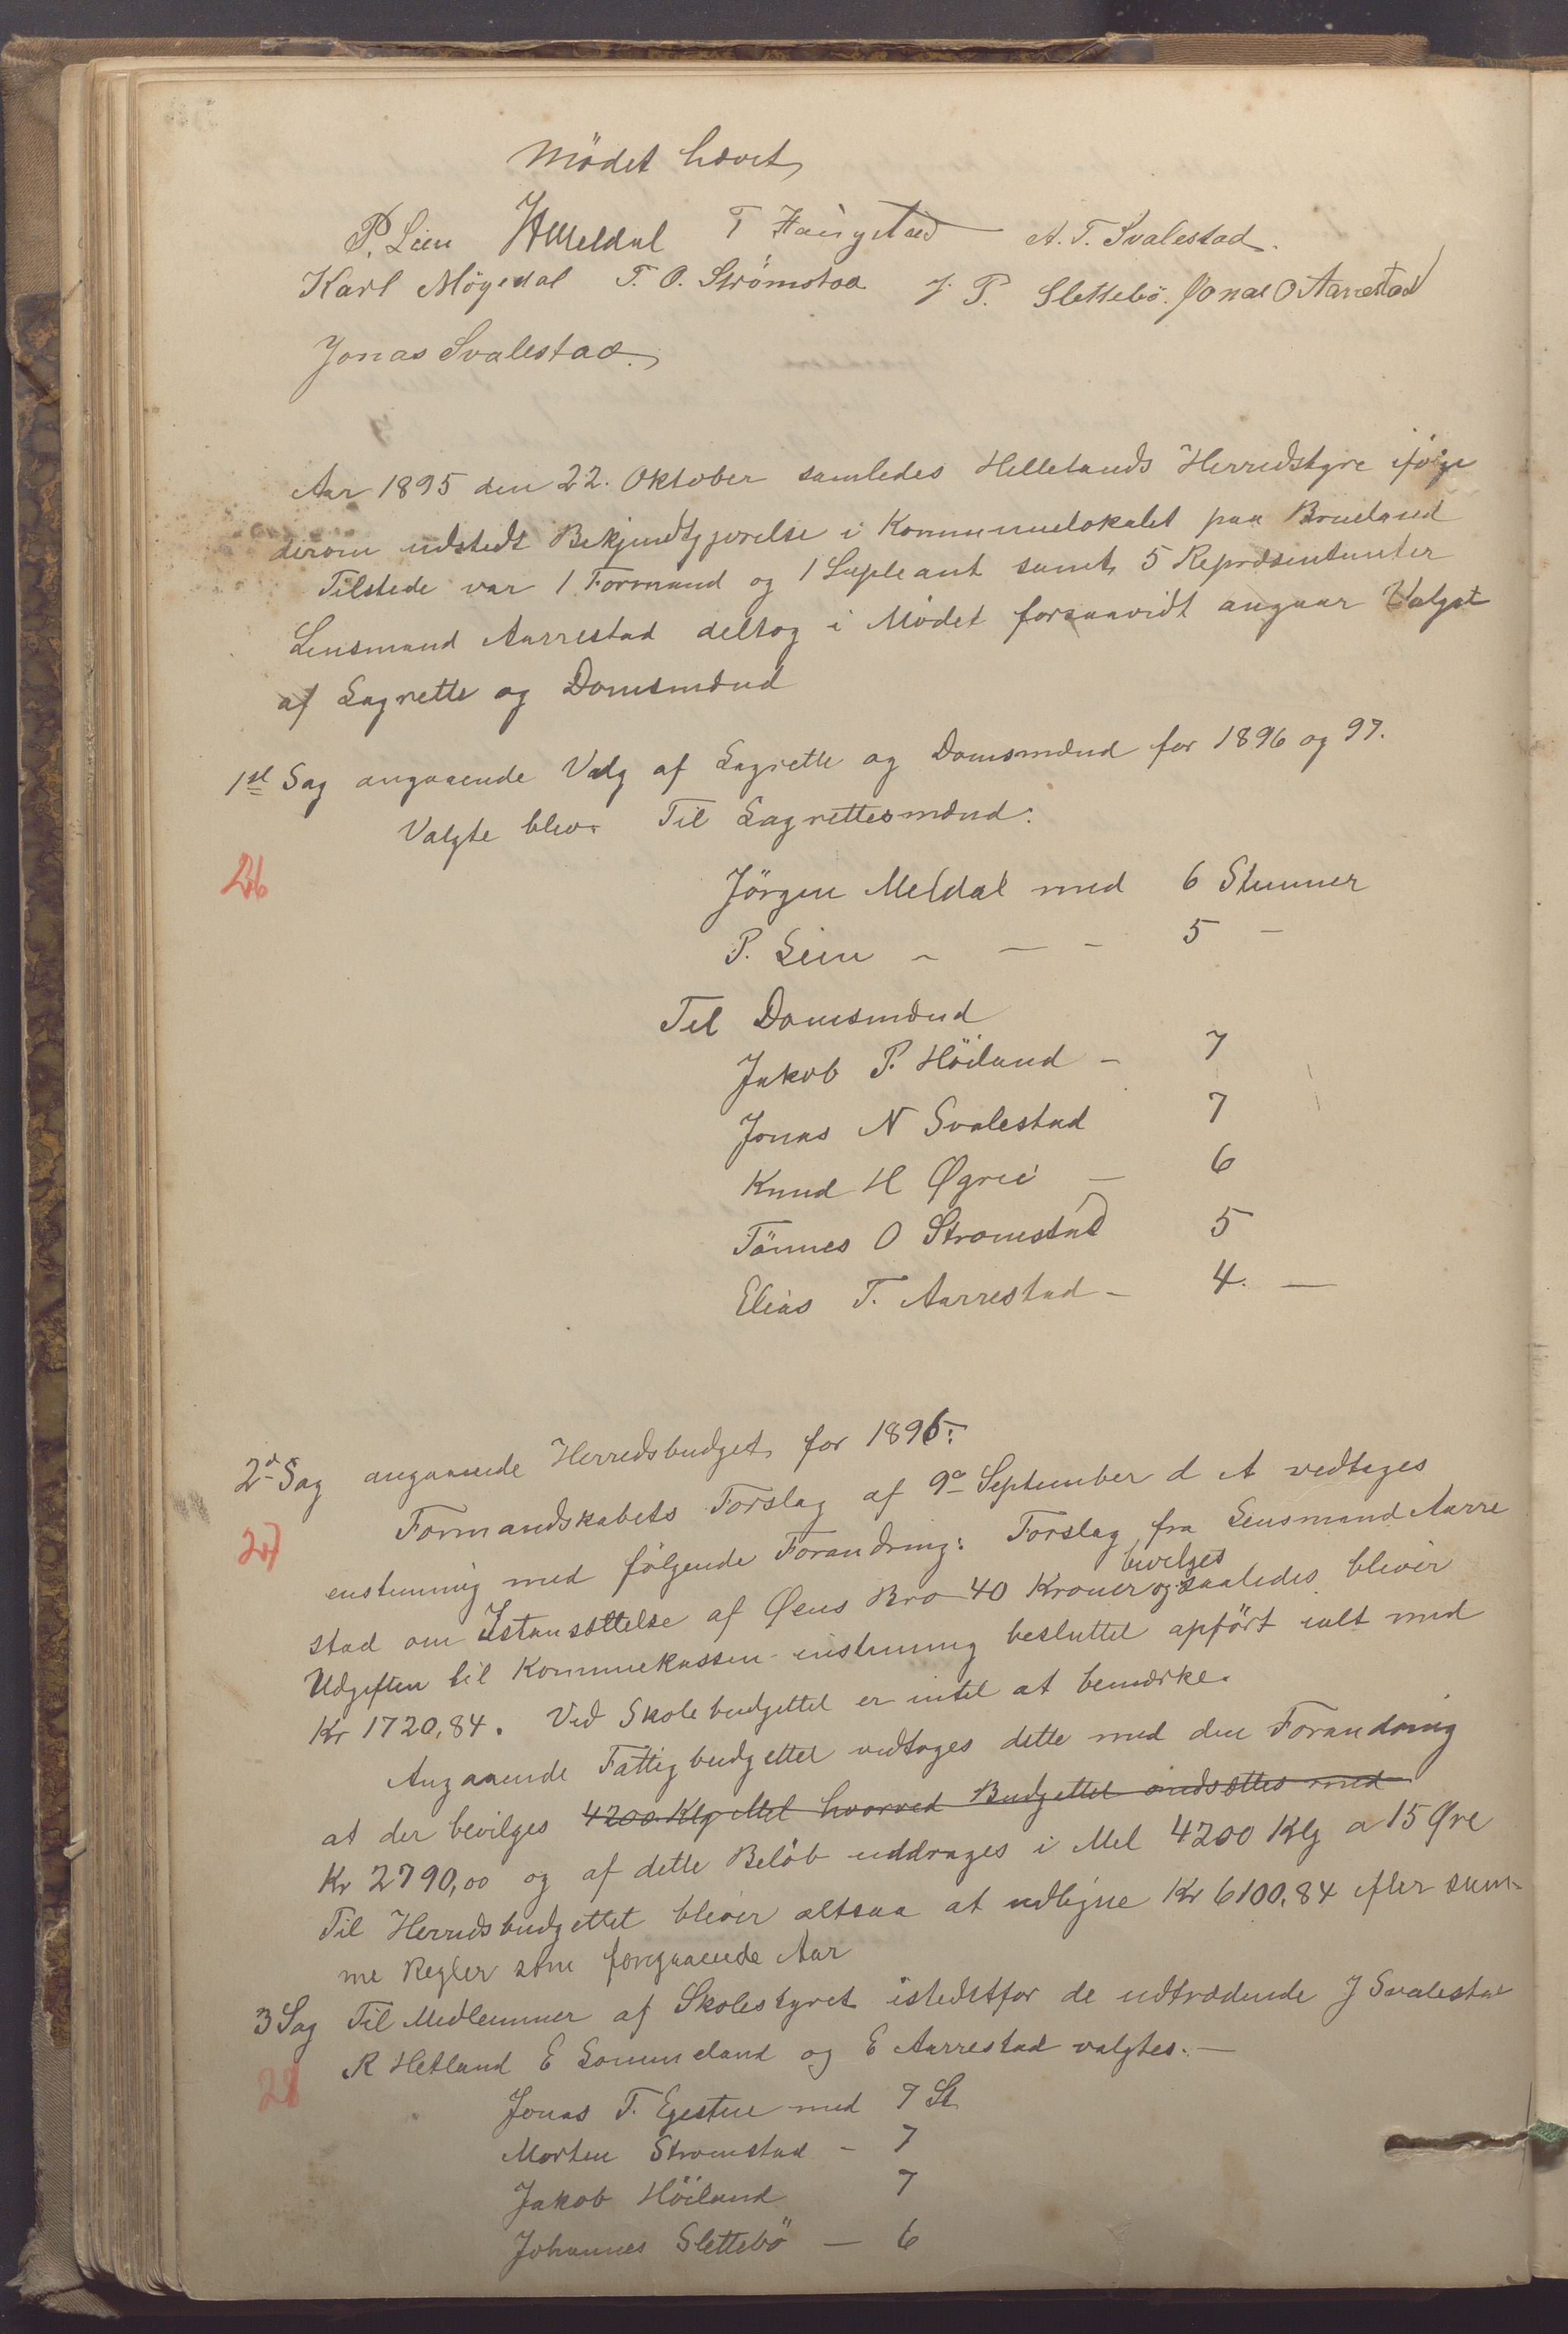 Mödet hævet
P. Lien JAMeldal T Haugstad A. T. Svalestad.
Karl Møgedal T. O. Strømstad J. P. Slettebö. Jonas O Aarrestad
Jonas Svalestad.
Aar 1895 den 22. Oktober samledes Hellelands Herredstyre ifølge
derom udstedt Bekjendtgjørelse i Kommunelokalet paa Brueland
Tilstede var 1 Formand og 1 Supleant samt 5 Repræsentanter
Lensmand Aarrestad deltog i Mödet forsaavidt angaar Valget
af Lagrette og Domsmænd
1ste Sag angaaende Valg af Lagrette og Domsmænd for 1896 og 97.
Valgte blev. Til Lagrettesmænd:
26
Jörgen Meldal med 6 Stemmer
P. Lien - — - 5 -
Til Domsmænd
Jakob P. Höiland - 7
Jonas N Svalestad 7
Knud H Øgrei — 6
Tönnes O Stromstad 5
Elias T. Aarrestad - 4. —
2d Sag angaaende Herredsbudget for 1896:
Formandskabets Forslag af 9de September d A vedtages
27
enstemmig med følgende Forandring: Forslag fra Lensmand Aarre
stad om Istansættelse af Øens Bro 40 Kroner bevilges og saaledes bliver
Udgiften til Kommunekassen enstemmig besluttet opfört ialt med
Kr 1720,84. Ved Skolebudgettet er intet at bemærke.
Angaaende Fattigbudgettet vedtages dette med den Forandring
at der bevilges 4200 Klg Mel hvorved Budgettet nedsættes med
Kr 2790,00 og af dette Beløb uddrages i Mel 4200 Klg a 15 Øre
Til Herredsbudgettet bliver altsaa at udligne Kr 6100,84 efter sam-
me Regler som foregaaende Aar
3 Sag Til Medlemmer af Skolestyret istedetfor de udtrædende J Svalestad
28
R Hetland E Lommeland og E Aarrestad valgtes. —
Jonas T. Egestue med 7 St
Morten Stromstad - 7
Jakob Höiland 7
Johannes Slettebö — 6